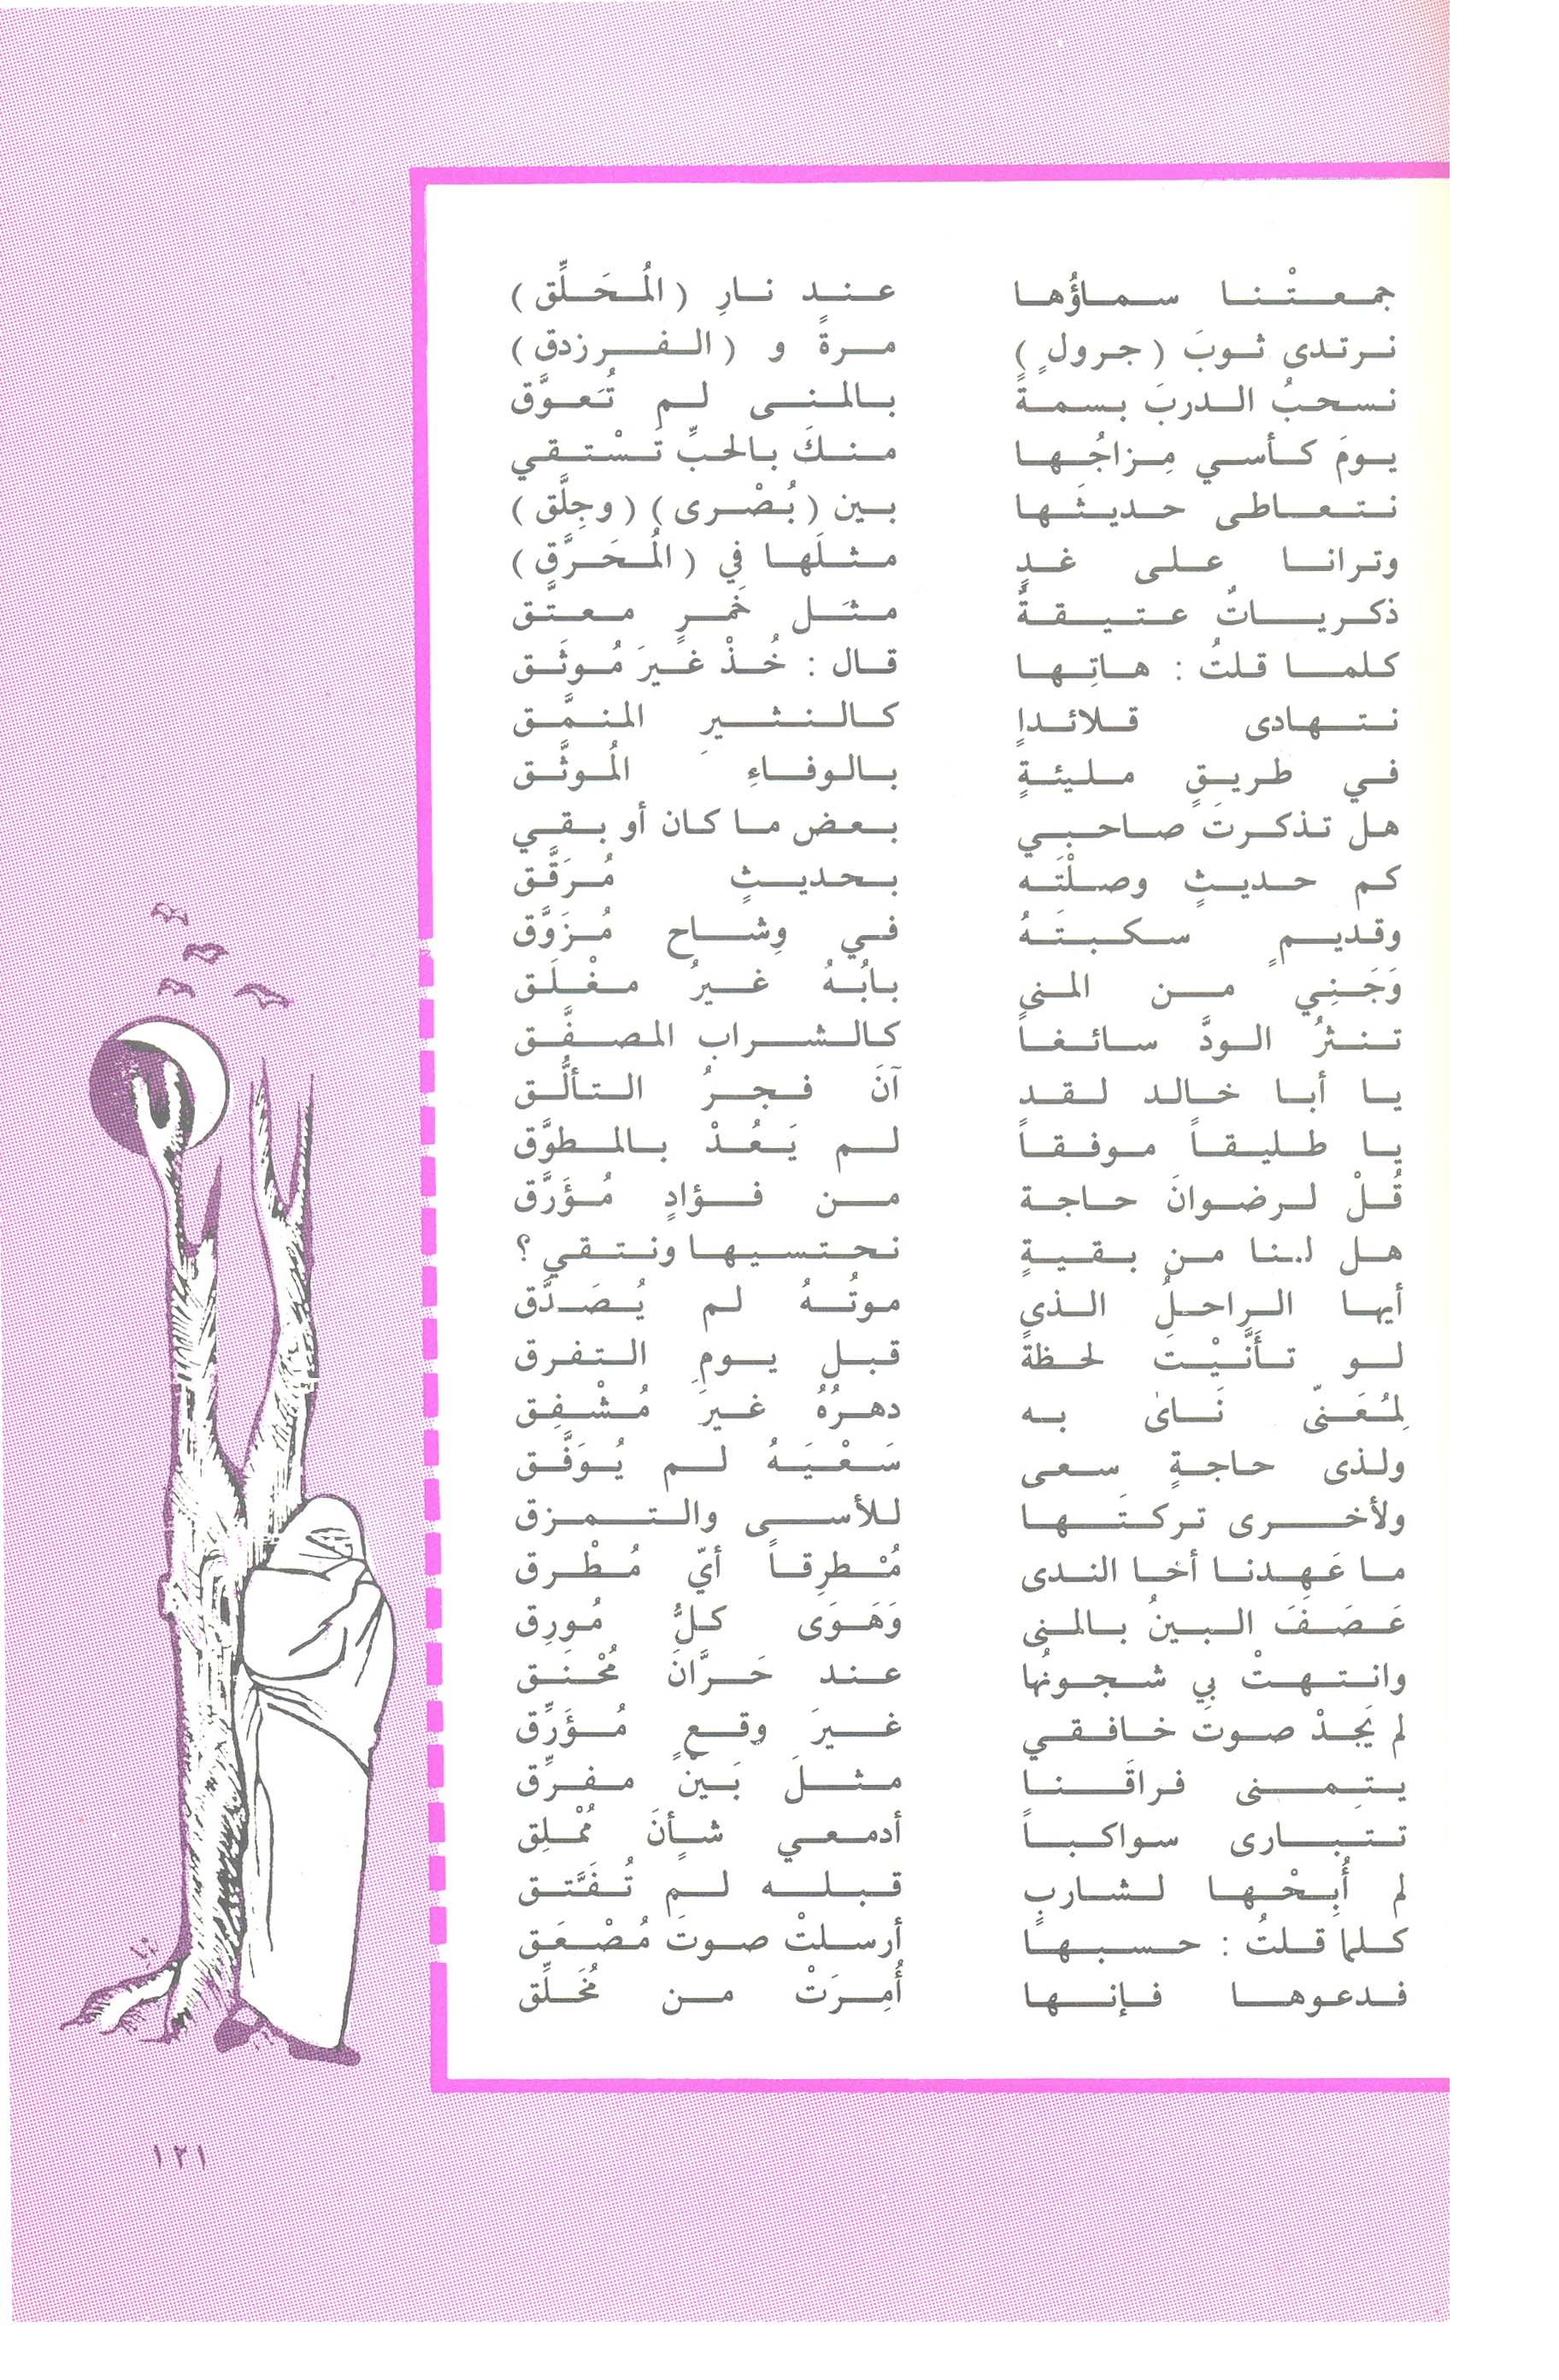 جمعتْنا سماؤُها عند نارِ (المُحَلِّق)
نرتدى ثوبَ (جرولٍ) مرةً و (الفرزدق)
نسحبُ الدربَ بسمةً بالمنى لم تُعوَّق
يومَ كأسي مِزاجُها منكَ بالحبِّ تَسْتقي
نتعاطى حديثَها بين (بُصْرى) (وجِلَّق)
وترانا على غدٍ مثلَها في (المُحَرَّق)
ذكرياتٌ عتيقةٌ مثَل خَمرٍ معتَّق
كلما قلتُ : هاتِها قال : خُذْ غيرَ مُوثَق
نتهادى قلائداٍ كالنثيرِ المنمَّق
في طريقٍ مليئةٍ بالوفاءِ المُوثَّق
هل تذكرتَ صاحبي بعض ما كان أو بقي
كم حديثٍ وصلْتَه بحديثٍ مُرَقَّق
وقديمٍ سكبتَهُ في وِشاح مُزَوَّق
وَجَنِي من المنى بابُهُ غيرُ مغْلَق
تنثرُ الودَّ سائغاً كالشراب المصفَّق
يا أبا خالد لقد آنَ فجرُ التألُّق
يا طليقاً موفقاً لم يَعُدْ بالمطوَّق
قُلْ لرضوانَ حاجة من فؤادٍ مُؤَرَّق
هل لنا من بقيةٍ نحتسيها ونتقي ؟
أيها الراحلُ الذي موتُهُ لم يُصَدَّق
لو تأنَّيْتَ لحظةً قبل يومِ التفرق
لِمُعَنىّ نَائ به دهرُهُ غيرَ مُشْفِق
ولذى حاجةٍ سعى سَعْيَهُ لم يُوَفَّق
ولأخرى تركتَها للأسى والتمزق
ما عَهِدنا أخا الندى مُطرِقاً أيّ مُطْرق
عَصَفَ البينُ بالمنى وَهَوَى كلُّ مُورِق
وانتهتْ بي شجونُها عند حَرَّانَ مُحْنق
لم يَجدْ صوتَ خافقي غيرَ وقعٍ مُؤَرِّق
يتمنى فراقَنا مثلَ بَينْ مفرِّق
تتبارى سواكباً أدمعي شأنَ مُمْلِق
لم أُبِحْها لشاربٍ قبله لم تُفَتَّق
كلما قلتُ : حسبها أرسلتْ صوتَ مُصْعَق
فدعوها فإنها أُمِرَتْ من مُخَلِّق
١٢١